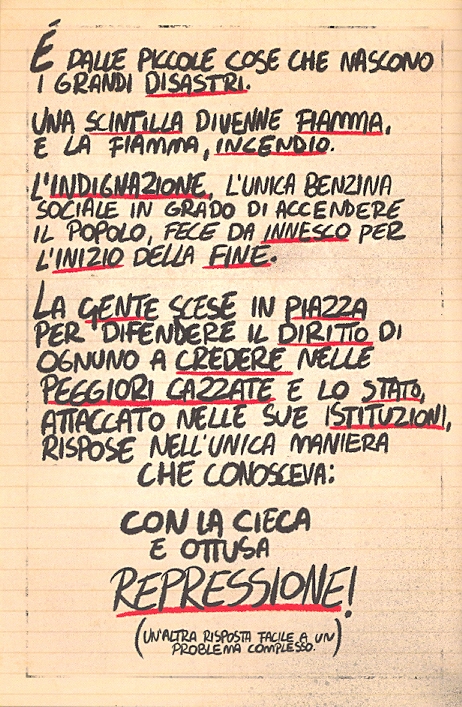 É DALLE PICCOLE COSE CHE NASCONO
I GRANDI DISASTRI.
UNA SCINTILLA DIVENNE FIAMMA,
E LA FIAMMA, INCENDIO.
L'INDIGNAZIONE, L'UNICA BENZINA
SOCIALE IN GRADO DI ACCENDERE
IL POPOLO, FECE DA INNESCO PER
L'INIZIO DELLA FINE.
LA GENTE SCESE IN PIAZZA
PER DIFENDERE IL DIRITTO DI
OGNUNO A CREDERE NELLE
PEGGIORI CAZZATE E LO STATO,
ATTACCATO NELLE SUE ISTITUZIONI,
RISPOSE NELL'UNICA MANIERA
CHE CONOSCEVA:
CON LA CIECA
E OTTUSA
REPRESSIONE!
(UN'ALTRA RISPOSTA FACILE A UN
PROBLEMA COMPLESSO.)